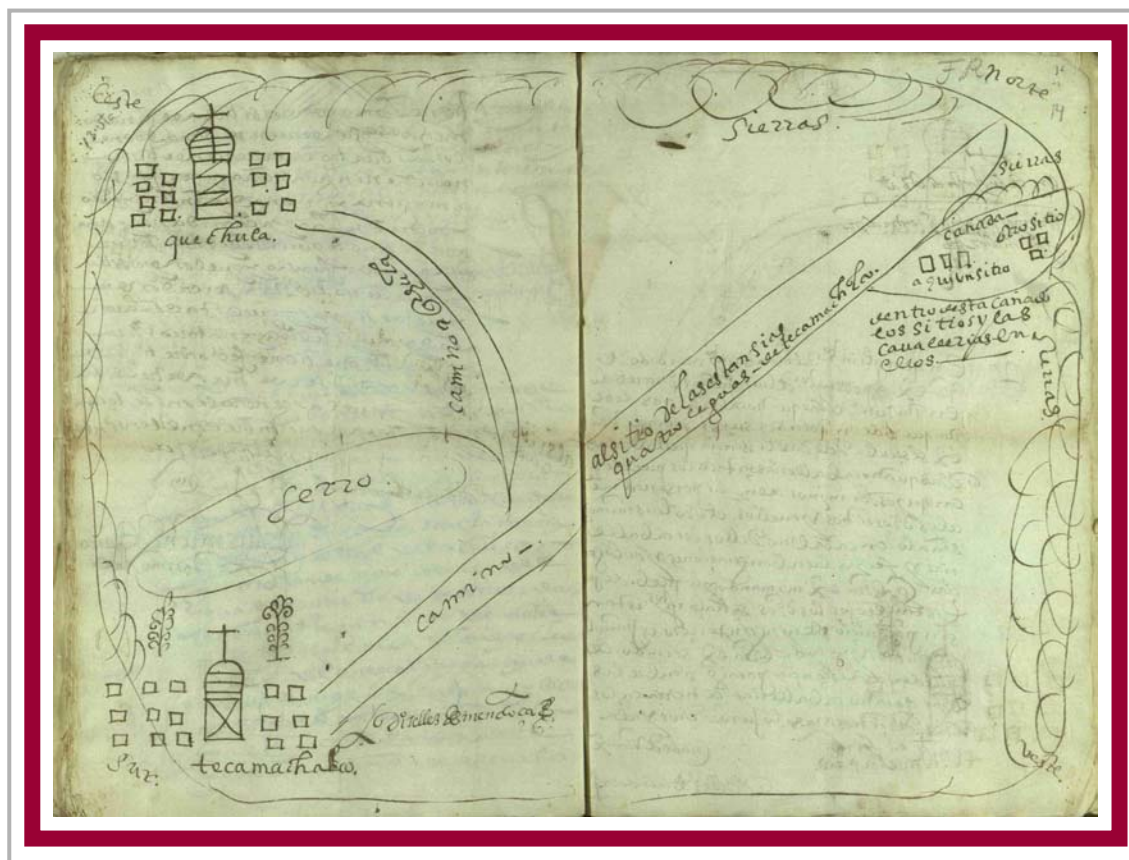 Leste
quechula.
camino a Quechula
serro.
camino.
tecamachalco.
sur.
di telles de mendoca
sierras.
Norte
sierras
cañada
otro sitio
aqui un sitio
dentro desta cañada
los sitios y las
cavallerias en
ellos
sierras
al sitio de las estansias
quatro leguas de tecamachalco.
veste.